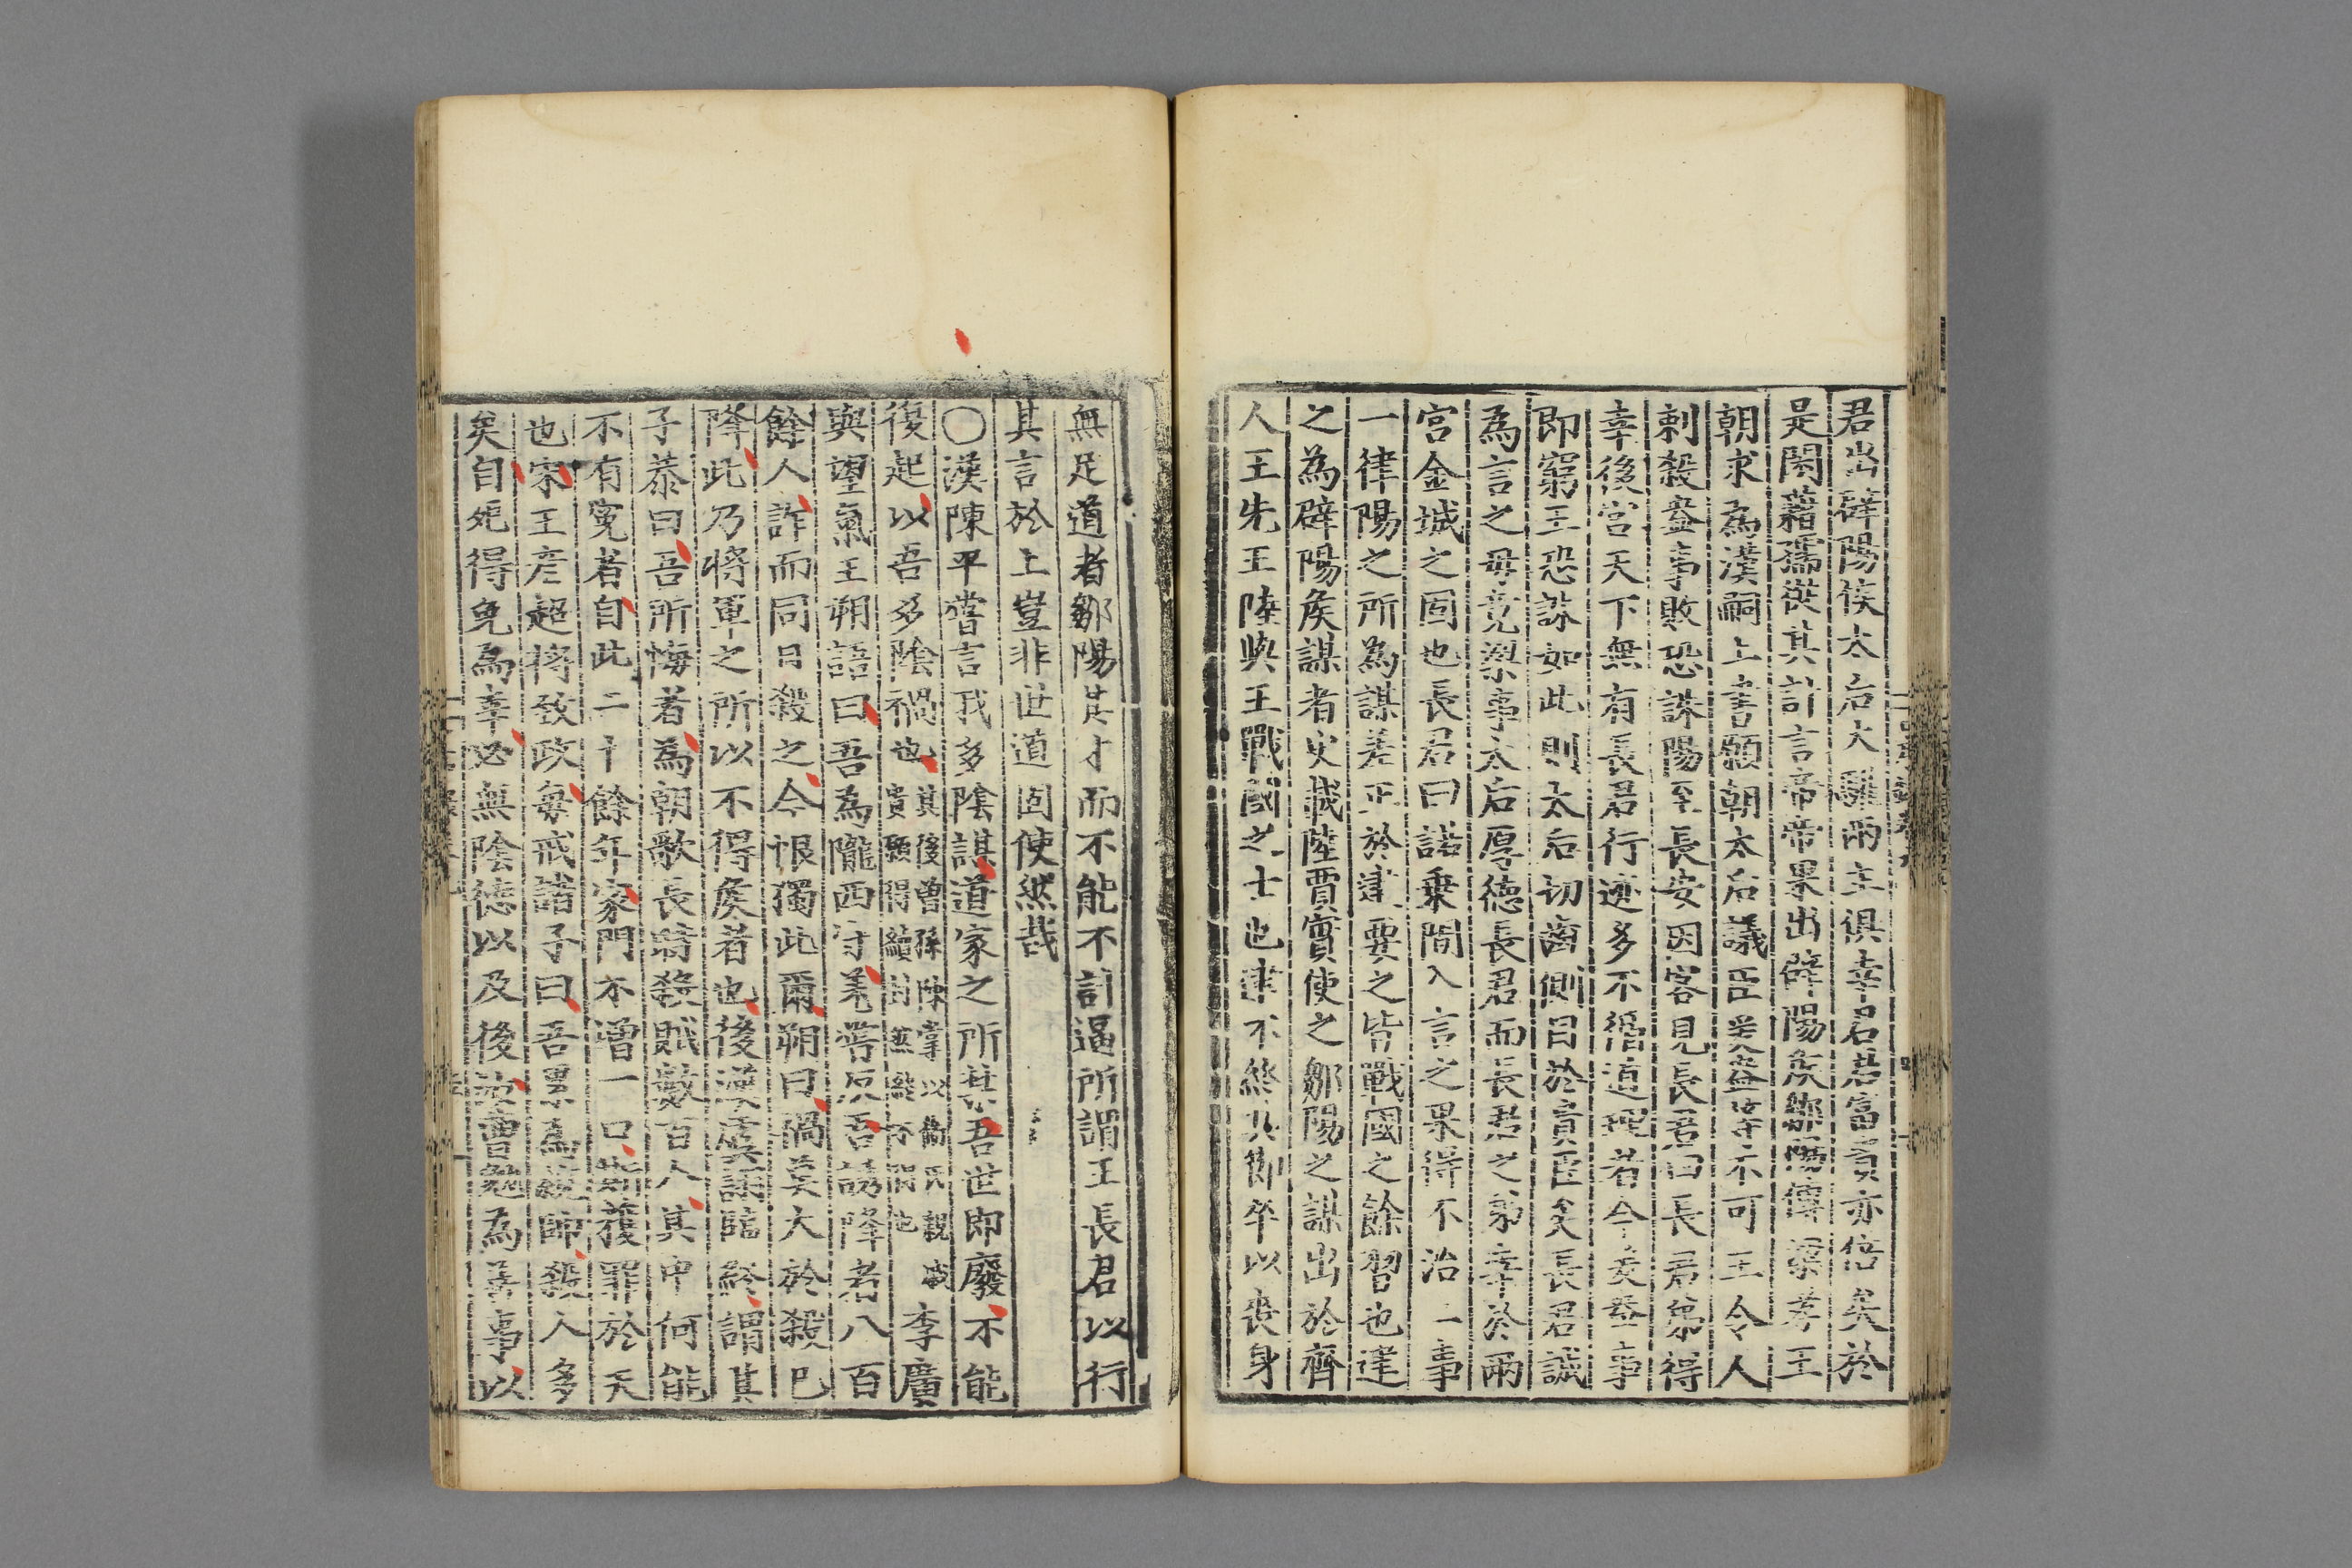 君出辟陽侯太后大驩兩主俱幸君君富貴亦倍矣於
是閎藉孺從其計言帝帝果出辟陽矦鄒陽傳梁孝王
朝求為漢嗣上書願朝太后議臣爰盎等不可王令人
刺殺盎事敗恐誅陽至長安因客見長君曰長君弟得
幸後宮天下無有長君行迹多不循道理者今爰盎事
即窮王恐誅如此則太后切齒側目於貴臣矣長君誠
為言之毋竟梁事太后厚德長君而長君之弟幸於兩
宮金城之固也長君曰諾乗間入言之果得不治二事
一律陽之所為謀差正於建要之皆戰國之餘習也建
之為辟陽矦謀者史載陸賈實使之鄒陽之謀出於齊
人王先王陸與王戰國之士也建不終其節卒以喪身
無足道者鄒陽其才而不能不訐逼所謂王長君以行
其言於上豈非世道固使然哉
〇漢陳平嘗言我多陰謀道家之所禁吾世即廢不能
復起以吾多陰禍也其後曾孫陳掌以衛氏親戚貴願得續封然終不得也李廣
與望氣王朔語曰吾為隴西守羌嘗反吾誘降者八百
餘人詐而同日殺之今恨獨此爾朔曰禍莫大於殺已
降此乃將軍之所以不得矦者也後漢虞詡臨終謂其
子恭曰吾所悔者為朝歌長時殺賊數百人其中何能
不有寃者自此二十餘年家門不增一口斯獲罪於天
也宋王彥超將致政每戒諸子曰吾累為統帥殺人多
矣自死得免為幸必無陰德以及後汝曹勉為善事以